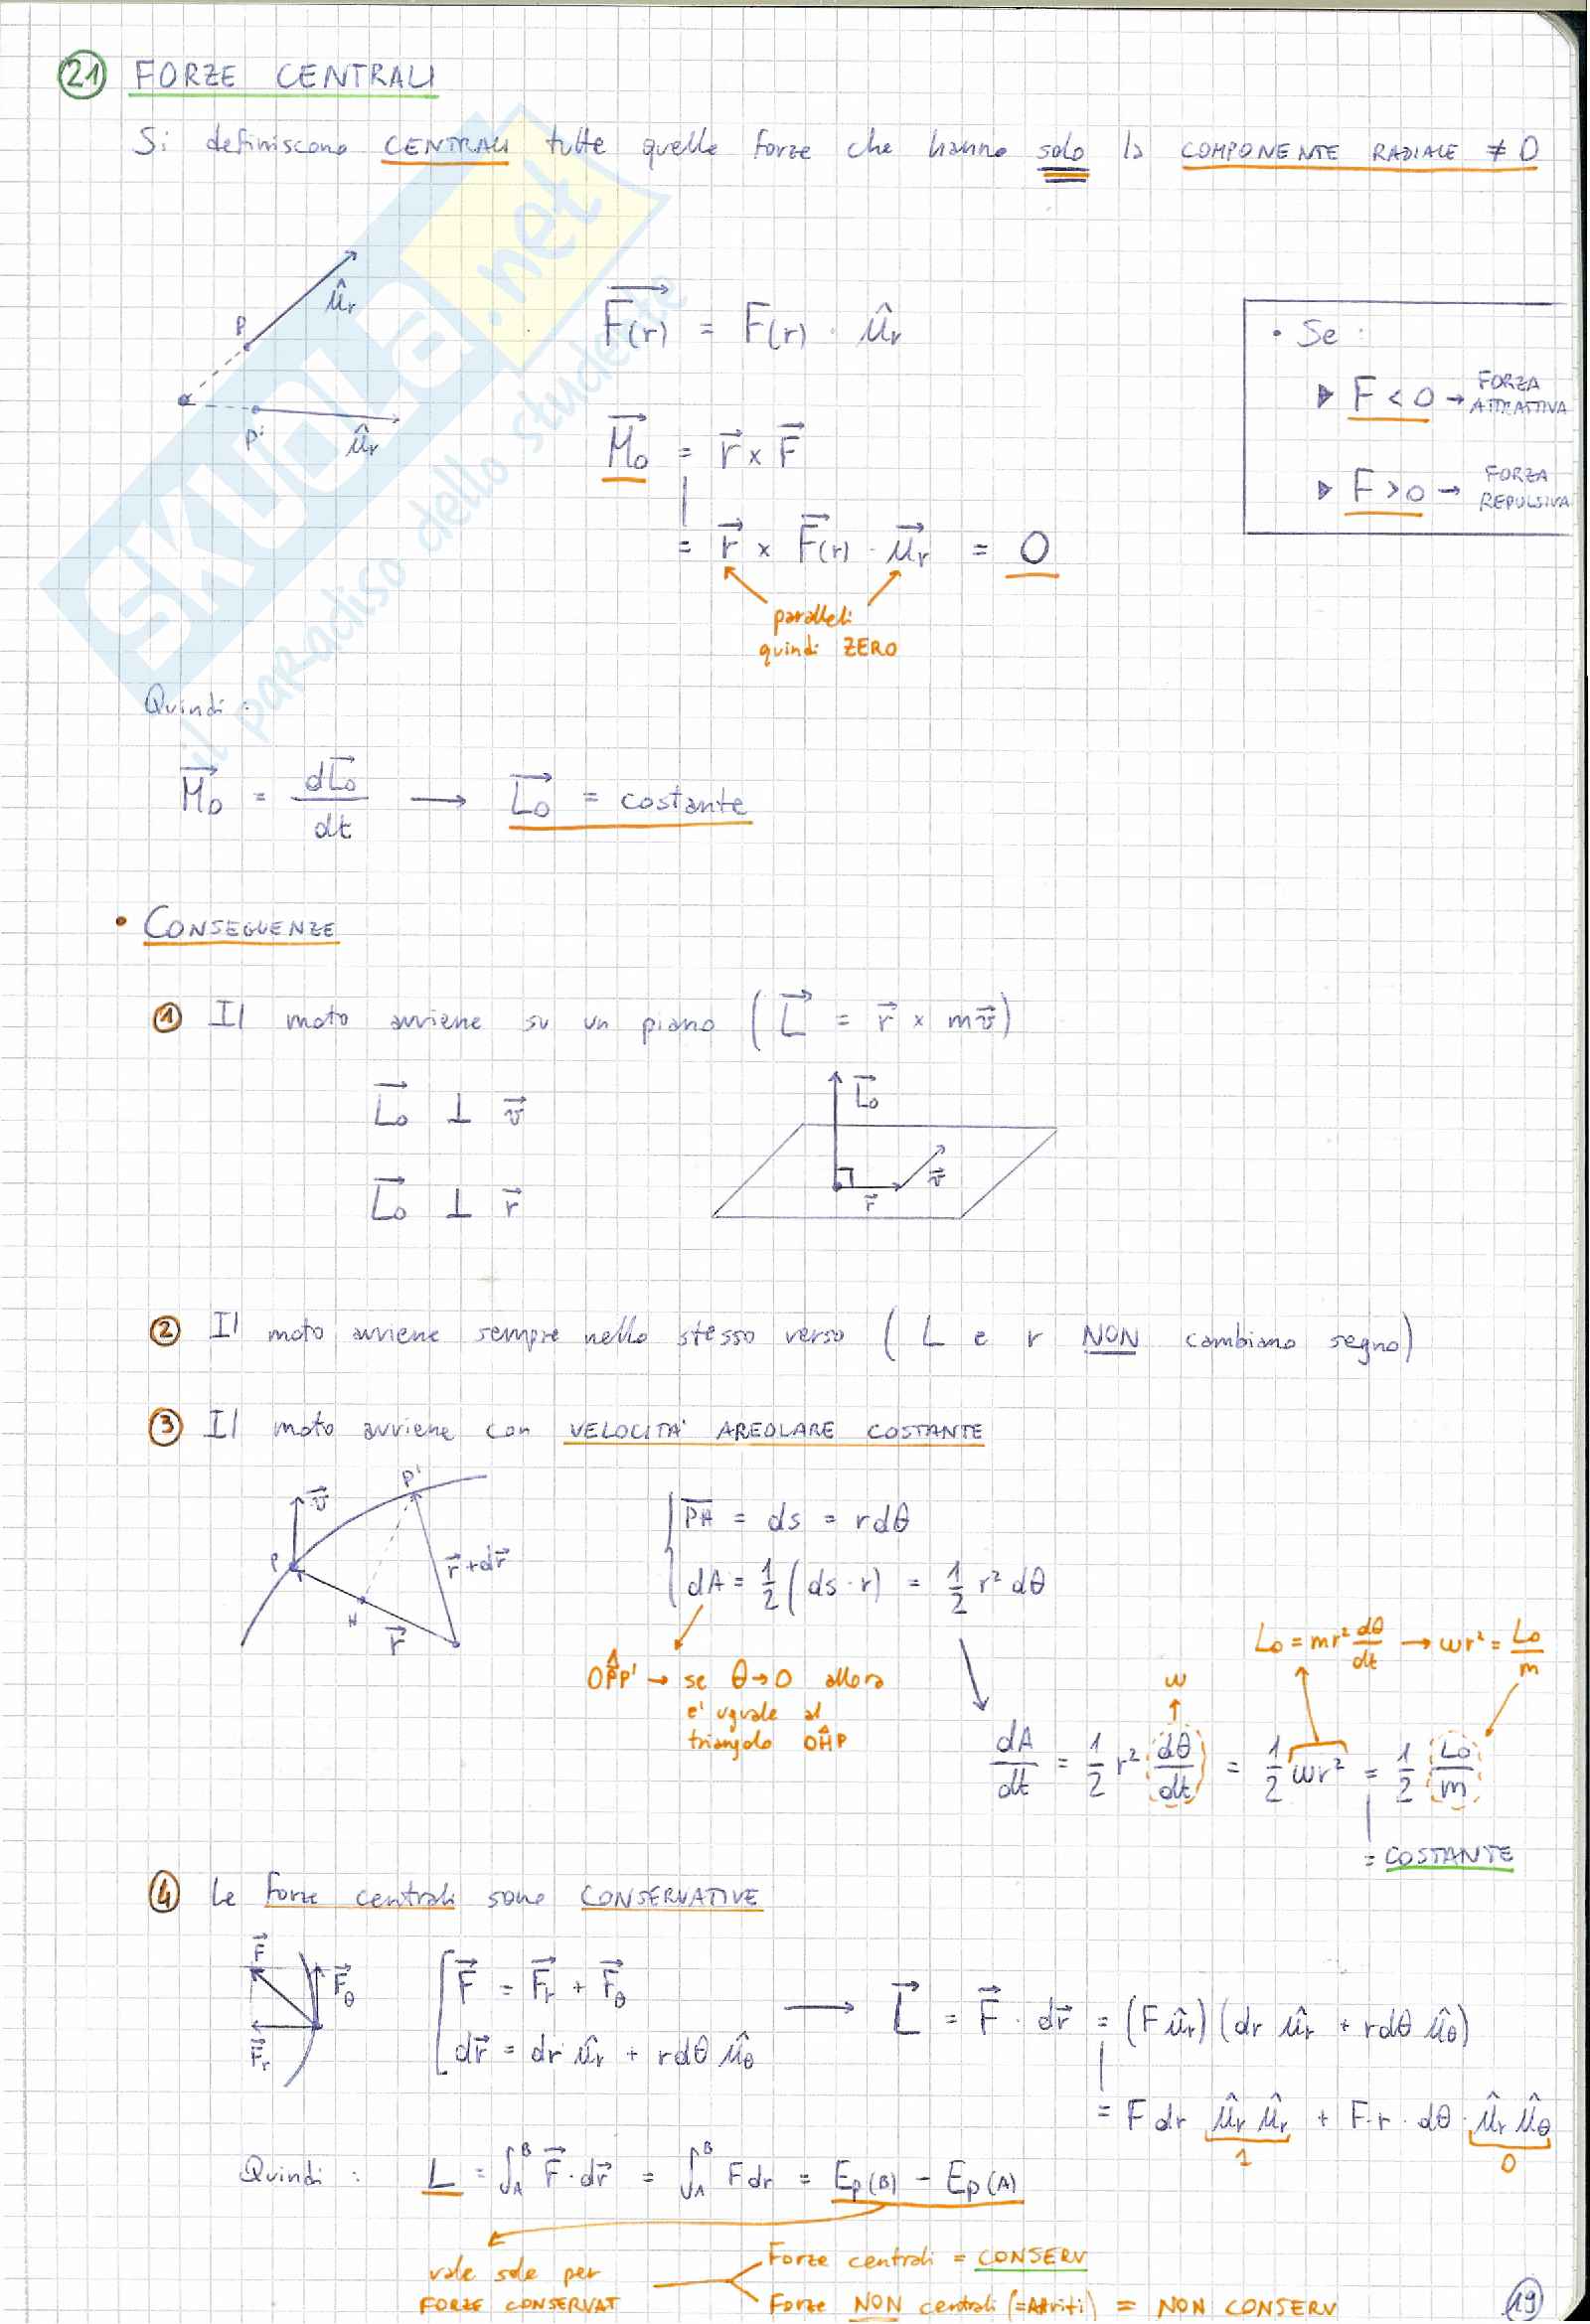 21 FORZE CENTRALI
Si definiscono CENTRALI tutte quelle forze che hanno solo la COMPONENTE RADIALE ≠ 0
SKUOLA.net
il paradiso dello studente
P
û_r
P'
û_r
F⃗(r) = F(r) · û_r
M⃗_O = r⃗ × F⃗
= r⃗ × F⃗(r) · u⃗_r = 0
paralleli
quindi ZERO
• Se :
▶ F < 0 → FORZA ATTRATTIVA
▶ F > 0 → FORZA REPULSIVA
Quindi :
M⃗_O = dL⃗_O / dt → L⃗_O = costante
• CONSEGUENZE
① Il moto avviene su un piano ( L⃗ = r⃗ × mv⃗ )
L⃗_O ⊥ v⃗
L⃗_O ⊥ r⃗
L⃗_O
r⃗
v⃗
② Il moto avviene sempre nello stesso verso ( L e r NON cambiano segno )
③ Il moto avviene con VELOCITA' AREOLARE COSTANTE
v⃗
P'
P
H
r⃗
r⃗ + dr⃗
PH = ds = r dθ
dA = 1/2 ( ds · r ) = 1/2 r² dθ
OPP' → se θ→0 allora
e' uguale al
triangolo OHP
L_O = mr² dθ/dt → ωr² = L_O/m
ω
dA/dt = 1/2 r² dθ/dt = 1/2 ωr² = 1/2 L_O/m
= COSTANTE
④ Le forze centrali sono CONSERVATIVE
F⃗
F⃗_θ
F⃗_r
F⃗ = F⃗_r + F⃗_θ
dr⃗ = dr û_r + r dθ û_θ
→ L⃗ = F⃗ · dr⃗ = (F û_r) (dr û_r + r dθ û_θ)
= F dr û_r û_r + F · r · dθ · û_r û_θ
1
0
Quindi : L = ∫_A^B F⃗ · dr⃗ = ∫_A^B F dr = E_p(B) - E_p(A)
vale solo per
FORZE CONSERVAT
Forze centrali = CONSERV
Forze NON centrali (=Attriti) = NON CONSERV
19